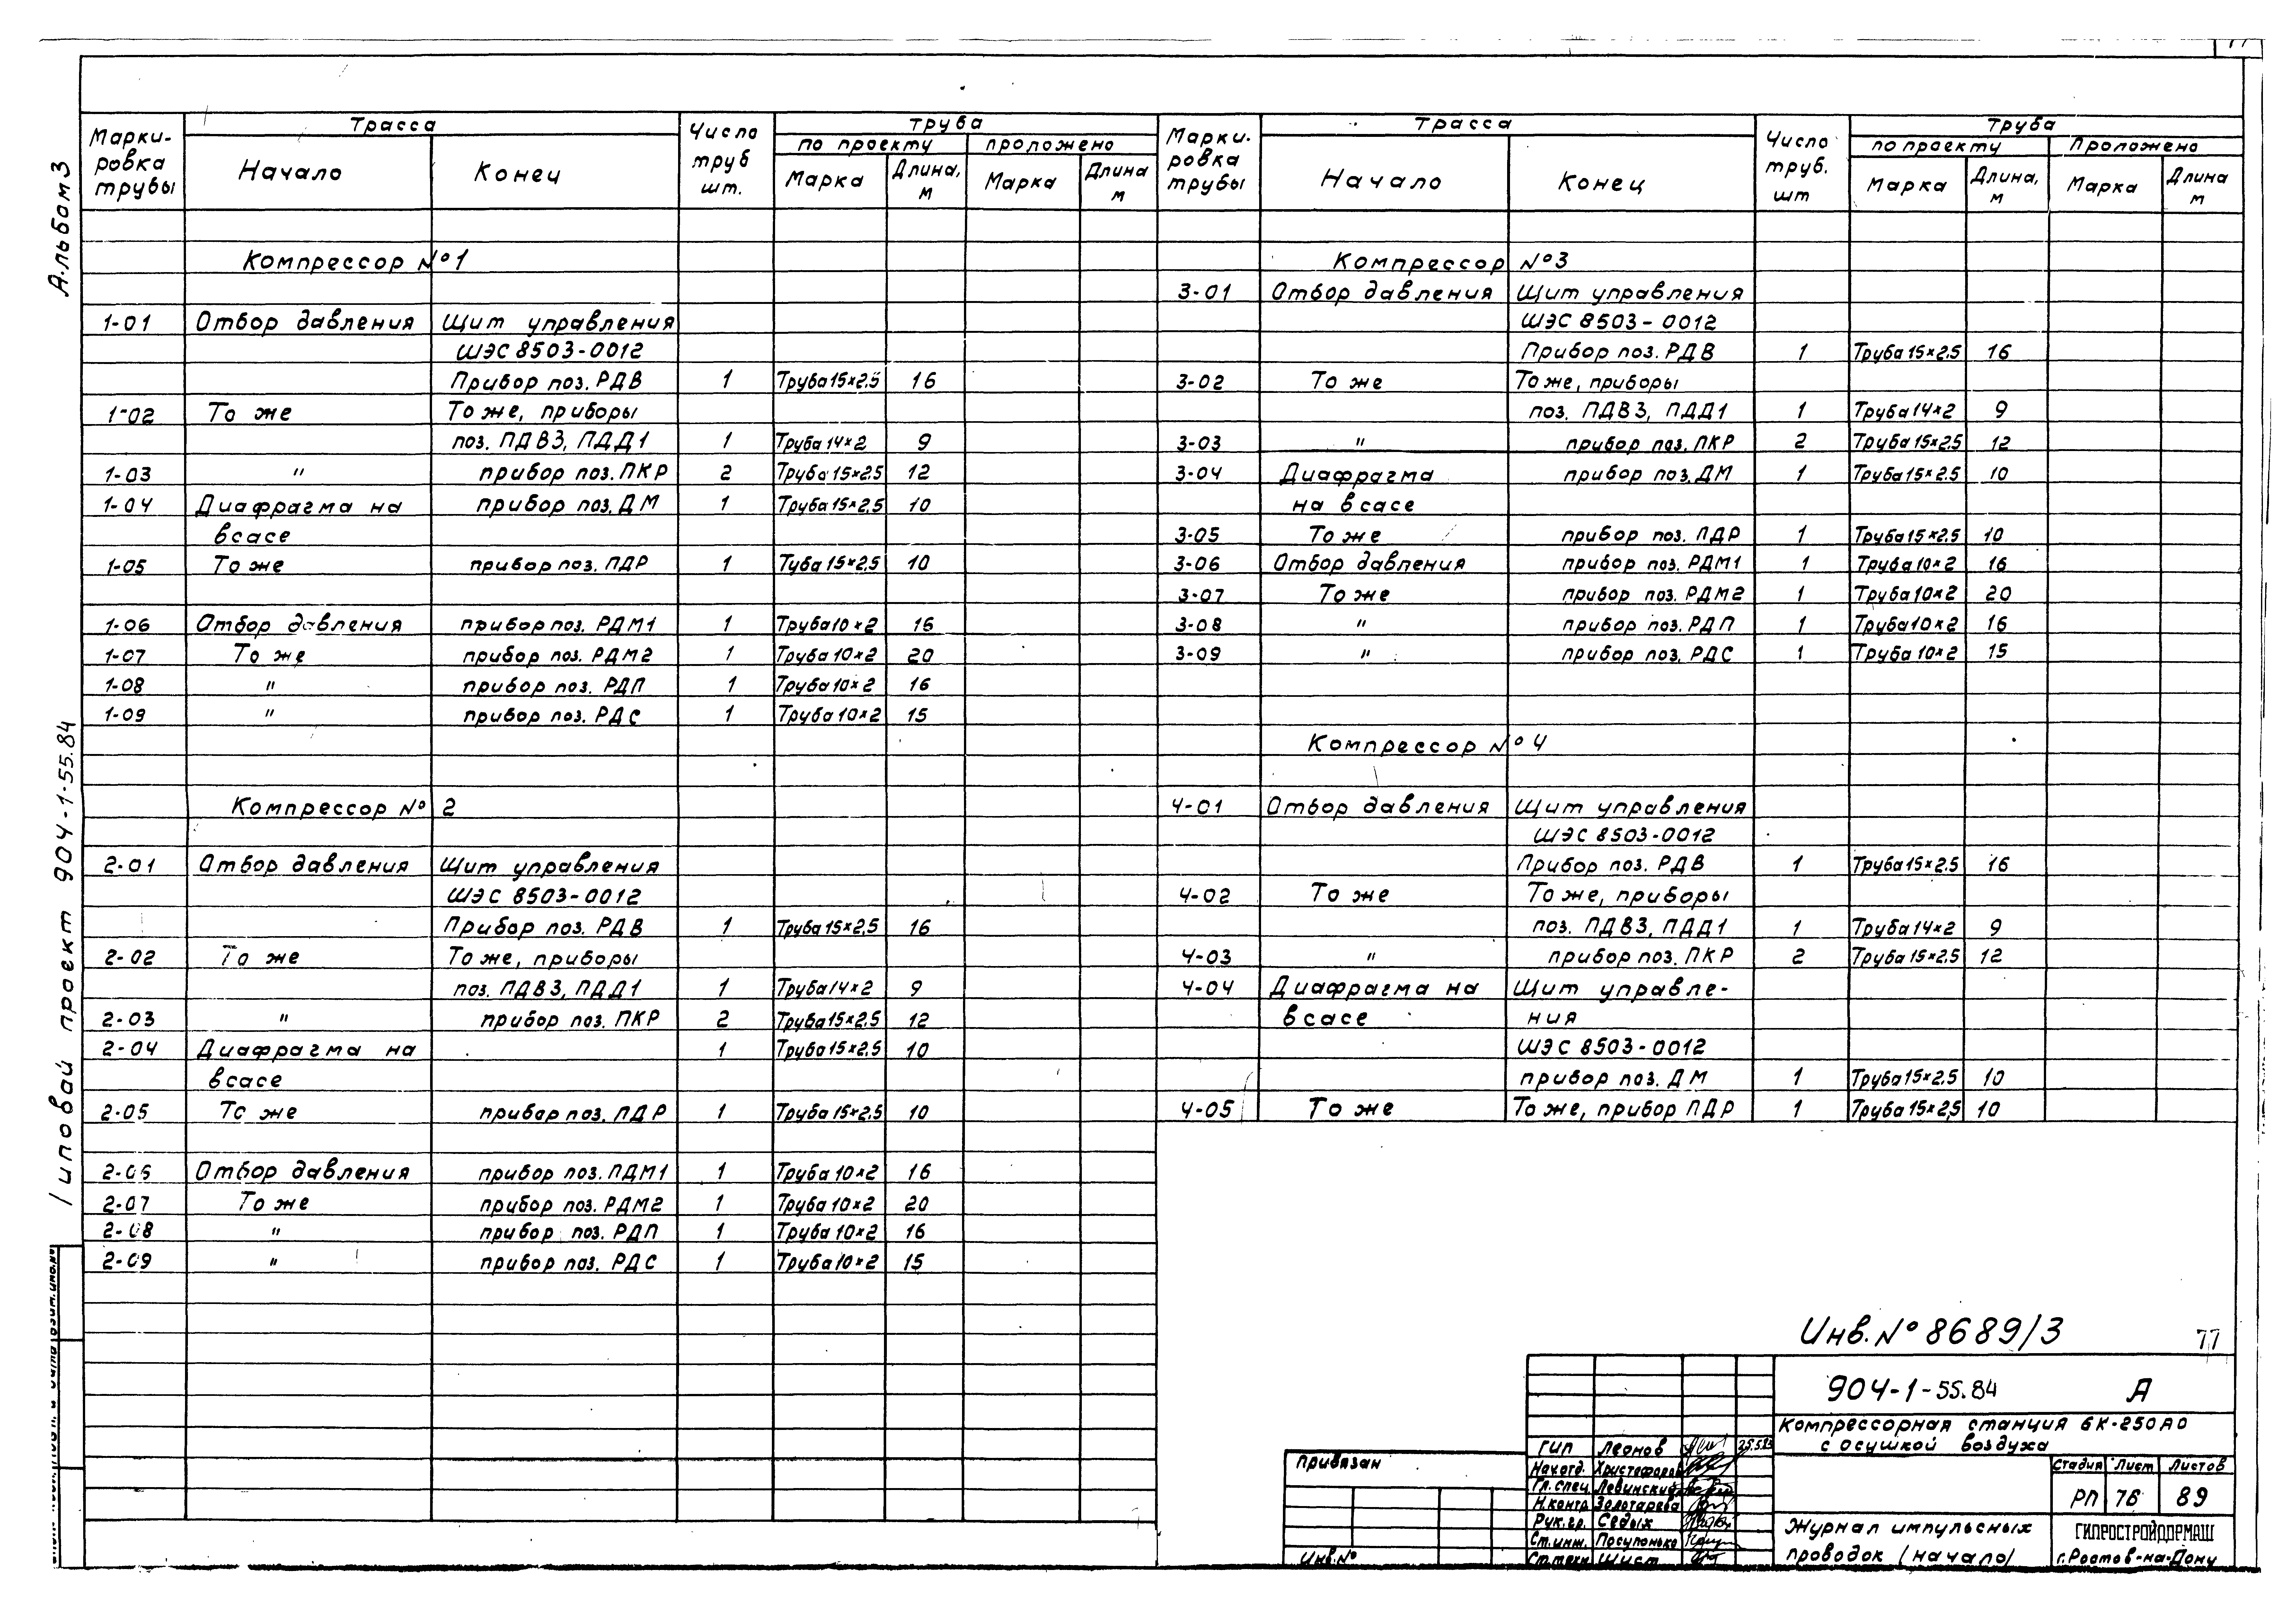 Альбом 3
Типовой проект 904-1-55.84
Марки-ровка трубы | Трасса | Число труб шт. | Труба
Начало | Конец | по проекту | проложено
Марка | Длина, м | Марка | Длина м
Компрессор №1
1-01 Отбор давления Щит управления
ШЭС 8503-0012
Прибор поз. РДВ 1 Труба 15×2,5 16
1-02 То же То же, приборы
поз. ПДВ3, ПДД1 1 Труба 14×2 9
1-03 " прибор поз. ПКР 2 Труба 15×2,5 12
1-04 Диафрагма на прибор поз. ДМ 1 Труба 15×2,5 10
всасе
1-05 То же прибор поз. ПДР 1 Туба 15×2,5 10
1-06 Отбор давления прибор поз. РДМ1 1 Труба 10×2 16
1-07 То же прибор поз. РДМ2 1 Труба 10×2 20
1-08 " прибор поз. РДП 1 Труба 10×2 16
1-09 " прибор поз. РДС 1 Труба 10×2 15
Компрессор № 2
2-01 Отбор давления Щит управления
ШЭС 8503-0012
Прибор поз. РДВ 1 Труба 15×2,5 16
2-02 То же То же, приборы
поз. ПДВ3, ПДД1 1 Труба 14×2 9
2-03 " прибор поз. ПКР 2 Труба 15×2,5 12
2-04 Диафрагма на 1 Труба 15×2,5 10
всасе
2-05 То же прибор поз. ПДР 1 Труба 15×2,5 10
2-06 Отбор давления прибор поз. ПДМ1 1 Труба 10×2 16
2-07 То же прибор поз. РДМ2 1 Труба 10×2 20
2-08 " прибор поз. РДП 1 Труба 10×2 16
2-09 " прибор поз. РДС 1 Труба 10×2 15
Марки-ровка трубы | Трасса | Число труб. шт | Труба
Начало | Конец | по проекту | Проложено
Марка | Длина, м | Марка | Длина м
Компрессор №3
3-01 Отбор давления Щит управления
ШЭС 8503-0012
Прибор поз. РДВ 1 Труба 15×2,5 16
3-02 То же То же, приборы
поз. ПДВ3, ПДД1 1 Труба 14×2 9
3-03 " прибор поз. ПКР 2 Труба 15×2,5 12
3-04 Диафрагма прибор поз. ДМ 1 Труба 15×2,5 10
на всасе
3-05 То же прибор поз. ПДР 1 Труба 15×2,5 10
3-06 Отбор давления прибор поз. РДМ1 1 Труба 10×2 16
3-07 То же прибор поз. РДМ2 1 Труба 10×2 20
3-08 " прибор поз. РДП 1 Труба 10×2 16
3-09 " прибор поз. РДС 1 Труба 10×2 15
Компрессор №4
4-01 Отбор давления Щит управления
ШЭС 8503-0012
Прибор поз. РДВ 1 Труба 15×2,5 16
4-02 То же То же, приборы
поз. ПДВ3, ПДД1 1 Труба 14×2 9
4-03 " прибор поз. ПКР 2 Труба 15×2,5 12
4-04 Диафрагма на Щит управле-
всасе ния
ШЭС 8503-0012
прибор поз. ДМ 1 Труба 15×2,5 10
4-05 То же То же, прибор ПДР 1 Труба 15×2,5 10
Инв. № 8689/3 77
904-1-55.84 А
Компрессорная станция 6К-250АО
с осушкой воздуха
Привязан
Инв. №
ГИП Леонов
Нач.отд. Христофоров
Гл. спец. Левинский
Н. контр. Золотарева
Рук. гр. Седых
Ст. инж. Посупонько
Ст. техн. Шист
Стадия Лист Листов
РП 76 89
Журнал импульсных
проводок (начало)
ГИПРОСТРОЙДОРМАШ
г. Ростов-на-Дону